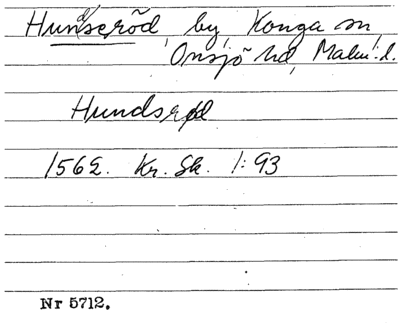 Hundseröd, by, Konga sn
Onsjö hd, Malm. l.
Hundsrød
1562. Kr. Sk. 1:93
Nr 5712.